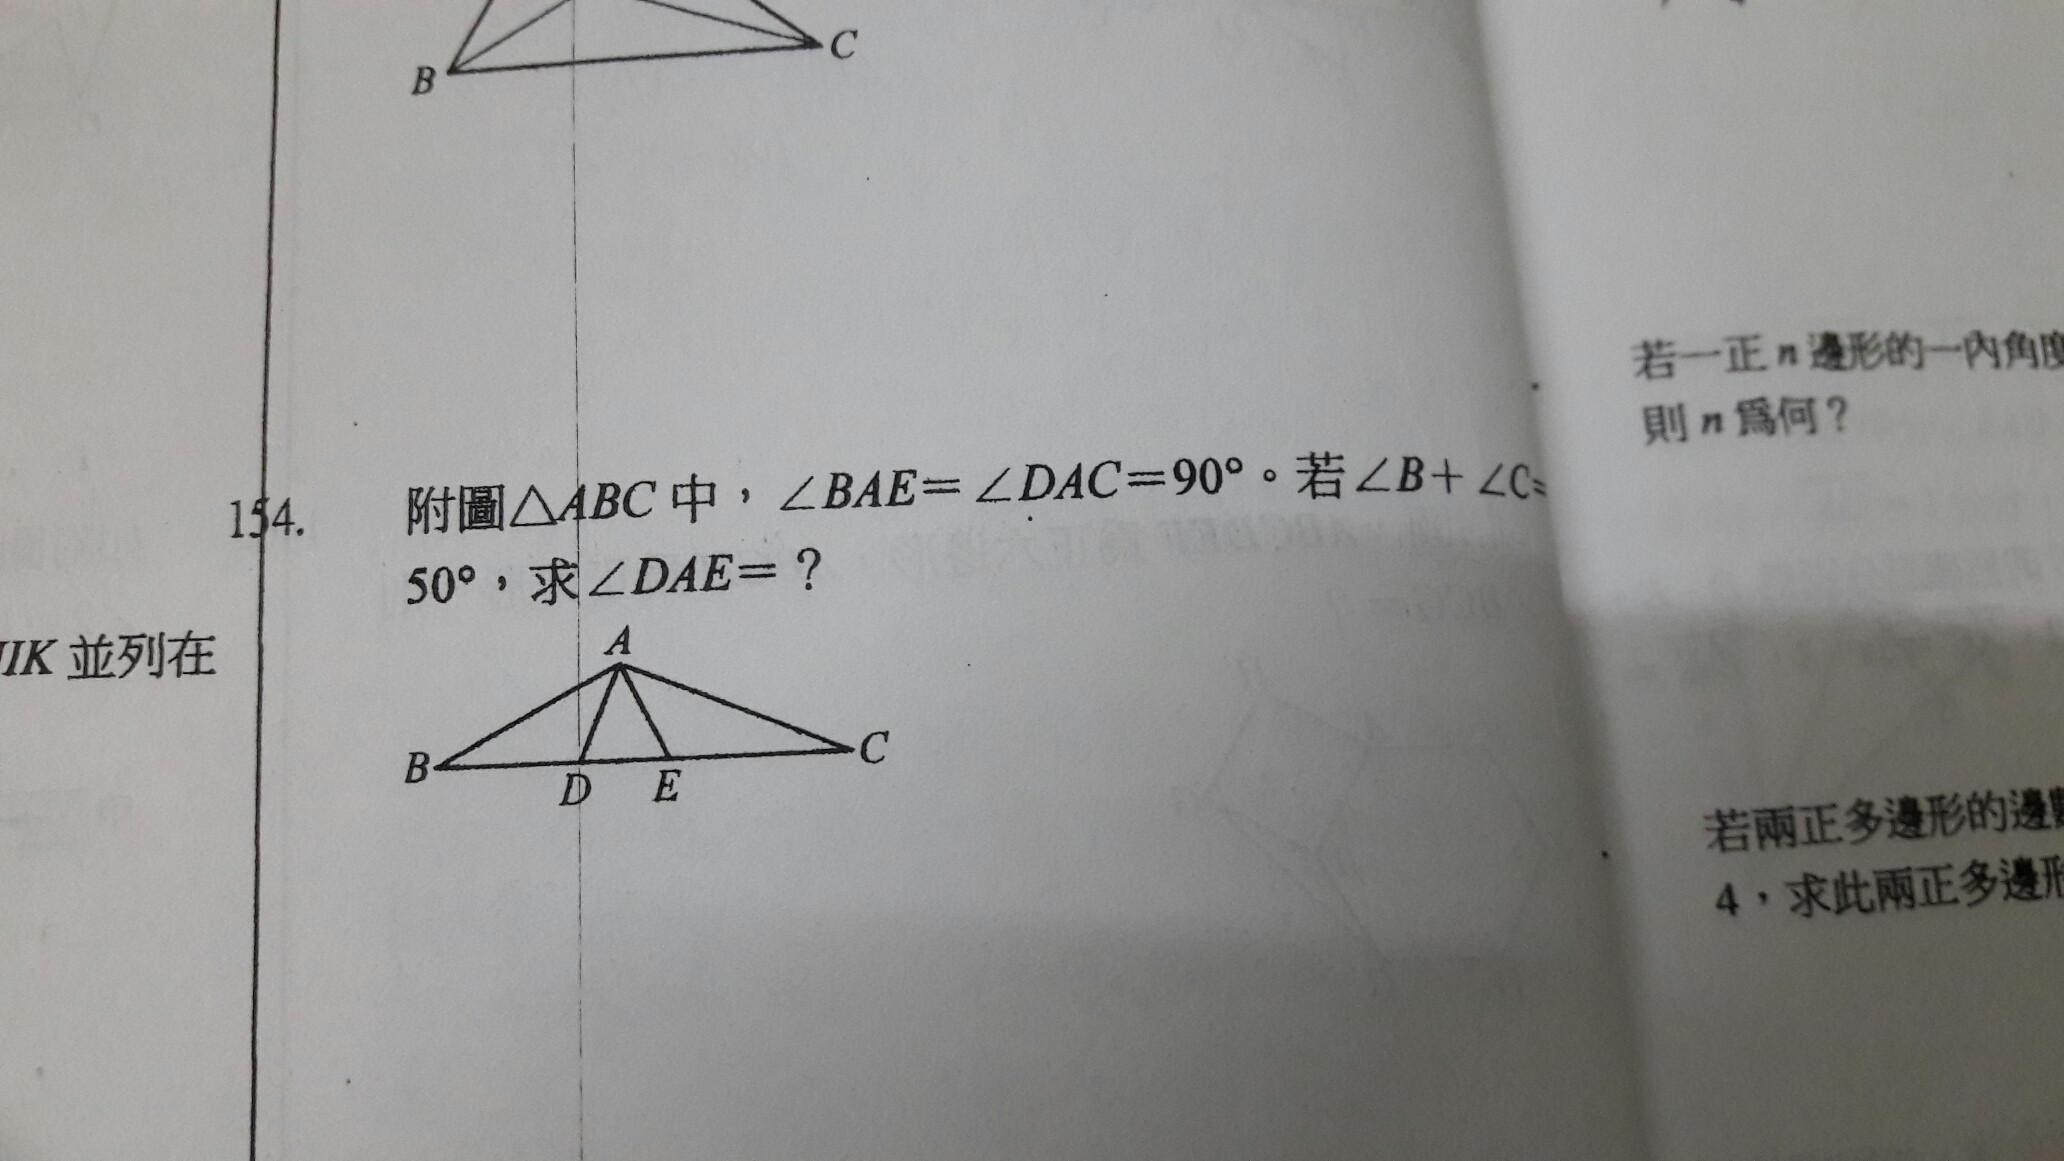 B
C
154.
附圖△ABC 中，∠BAE＝∠DAC＝90°。若∠B＋∠C＝
50°，求∠DAE＝？
A
B
D
E
C
IK 並列在
若一正 n 邊形的一內角度
則 n 爲何？
若兩正多邊形的邊數
4，求此兩正多邊形